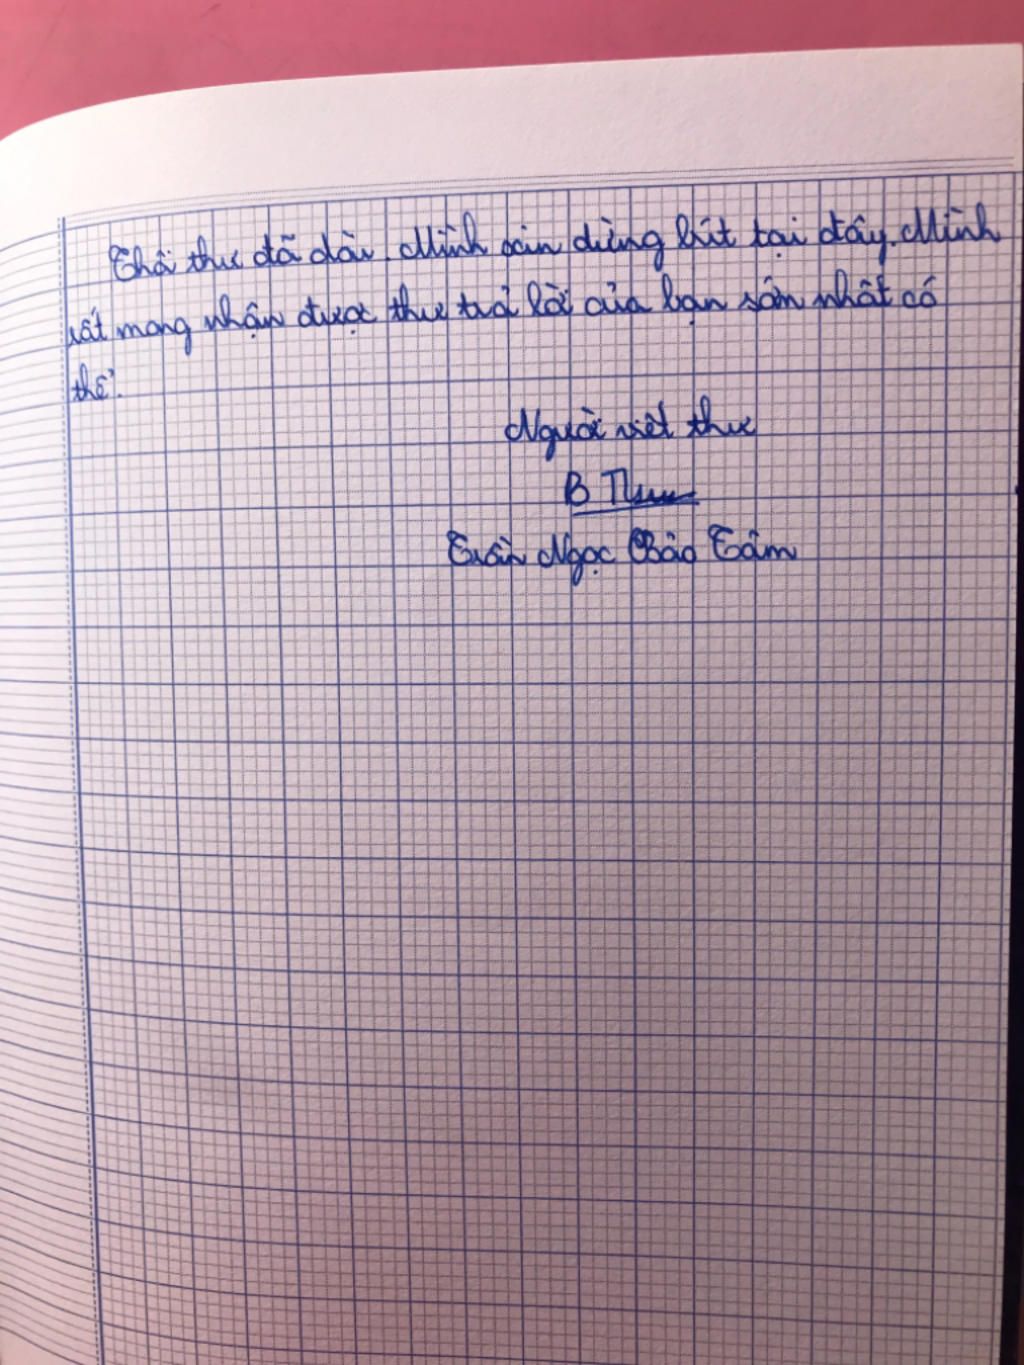 Thôi thư đã dài. Mình xin dừng bút tại đây. Mình
rất mong nhận được thư trả lời của bạn sớm nhất có
thể.
Người viết thư
B
Trần Ngọc Bảo Trâm